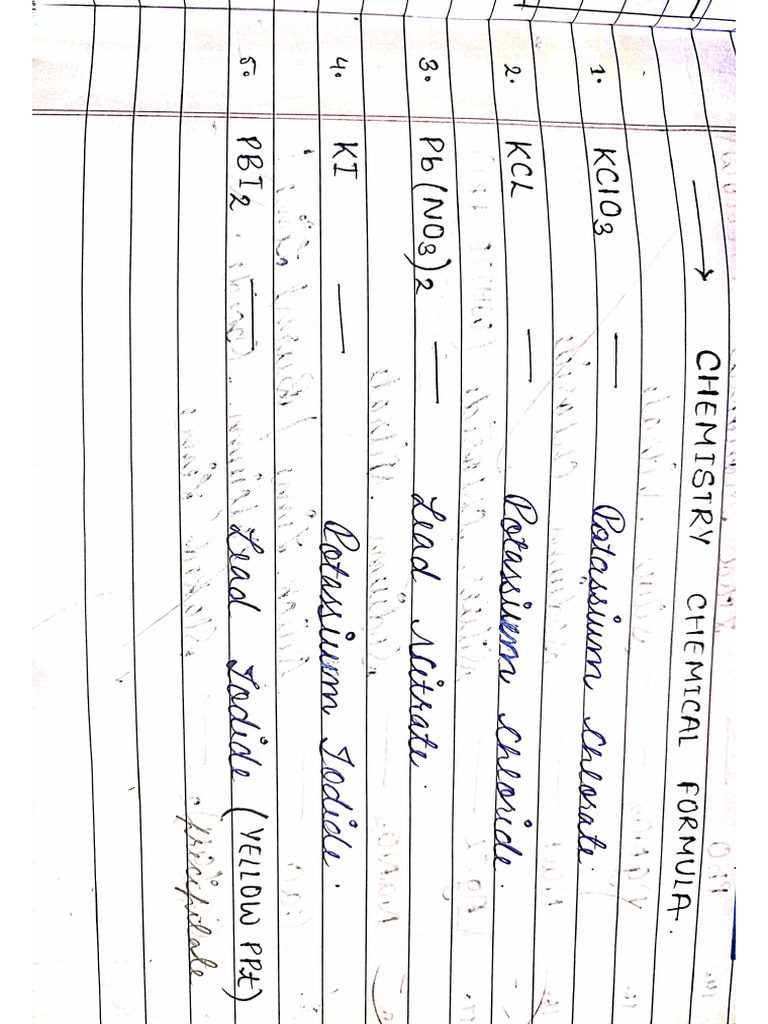 → CHEMISTRY CHEMICAL FORMULA.
1. KClO3 — Potassium Chlorate.
2. KCL — Potassium Chloride.
3. Pb(NO3)2 — Lead Nitrate.
4. KI — Potassium Iodide.
5. PBI2 — Lead Iodide (YELLOW PPt)
precipitate